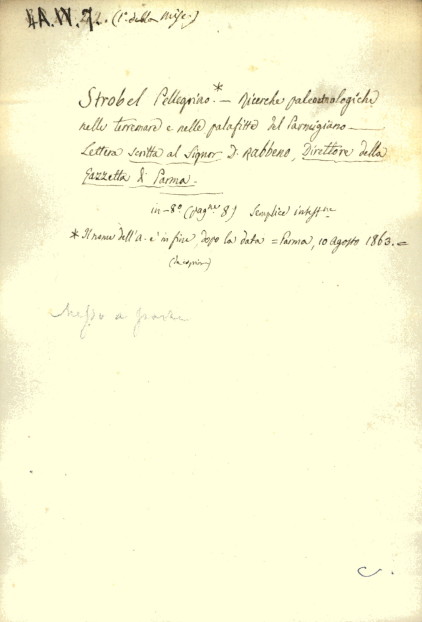 4A.IV.7. (1ª della Misc.)
Strobel Pellegrino.* — Ricerche paleoetnologiche
nelle terremare e nelle palafitte del Parmigiano —
Lettera scritta al Signor D. Rabbeno, Direttore della
Gazzetta di Parma. —
in-8º (pagne 8) Semplice intestne
* Il nome dell'A. è in fine, dopo la data = Parma, 10 Agosto 1863. =
Messo a parte
C.